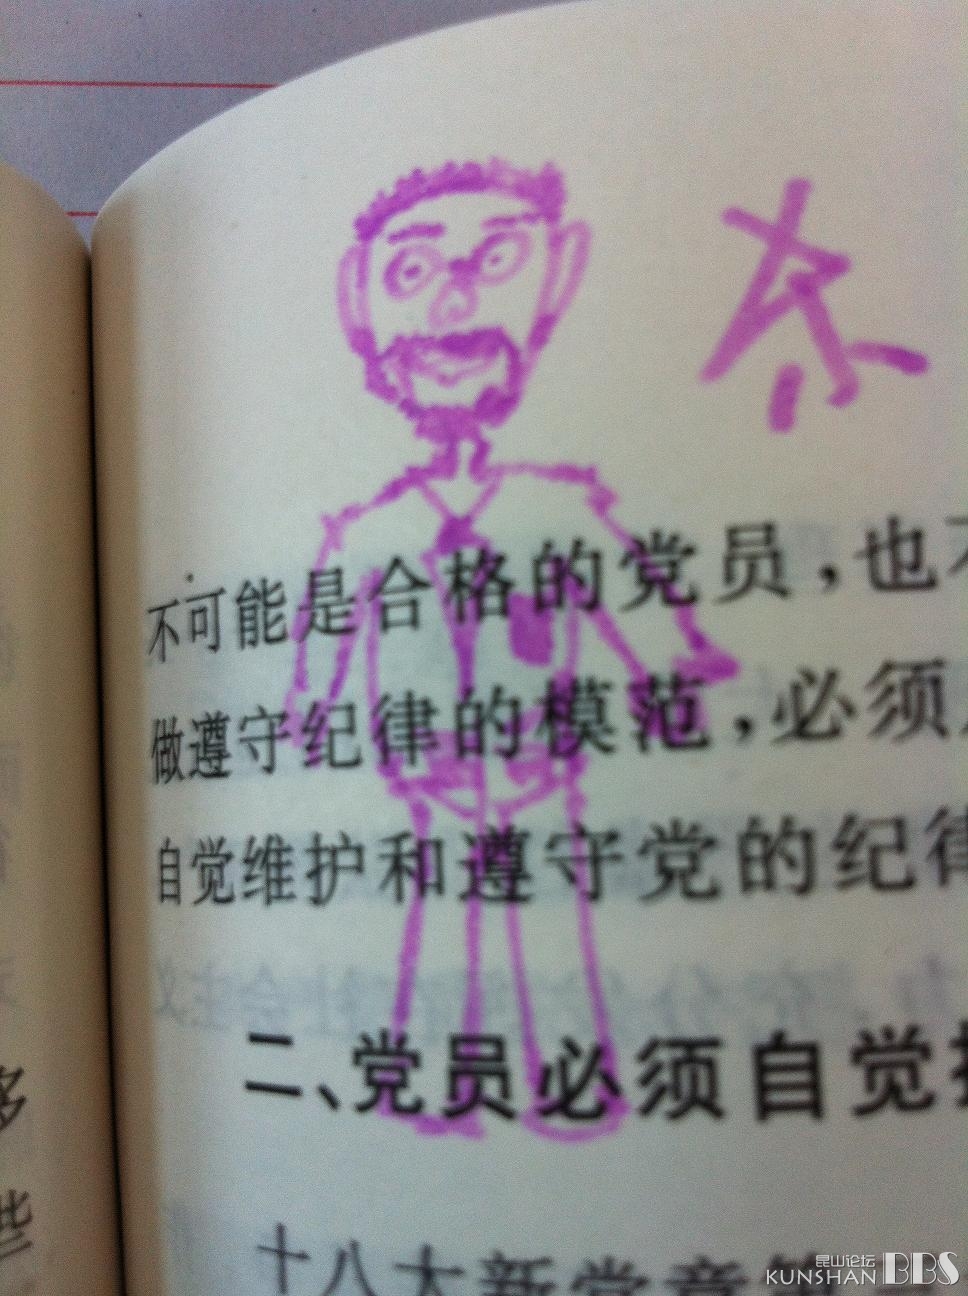 不可能是合格的党员，也不
做遵守纪律的模范，必须
自觉维护和遵守党的纪律
二、党员必须自觉
十八大新党章第
多
些
昆山论坛
KUNSHAN BBS